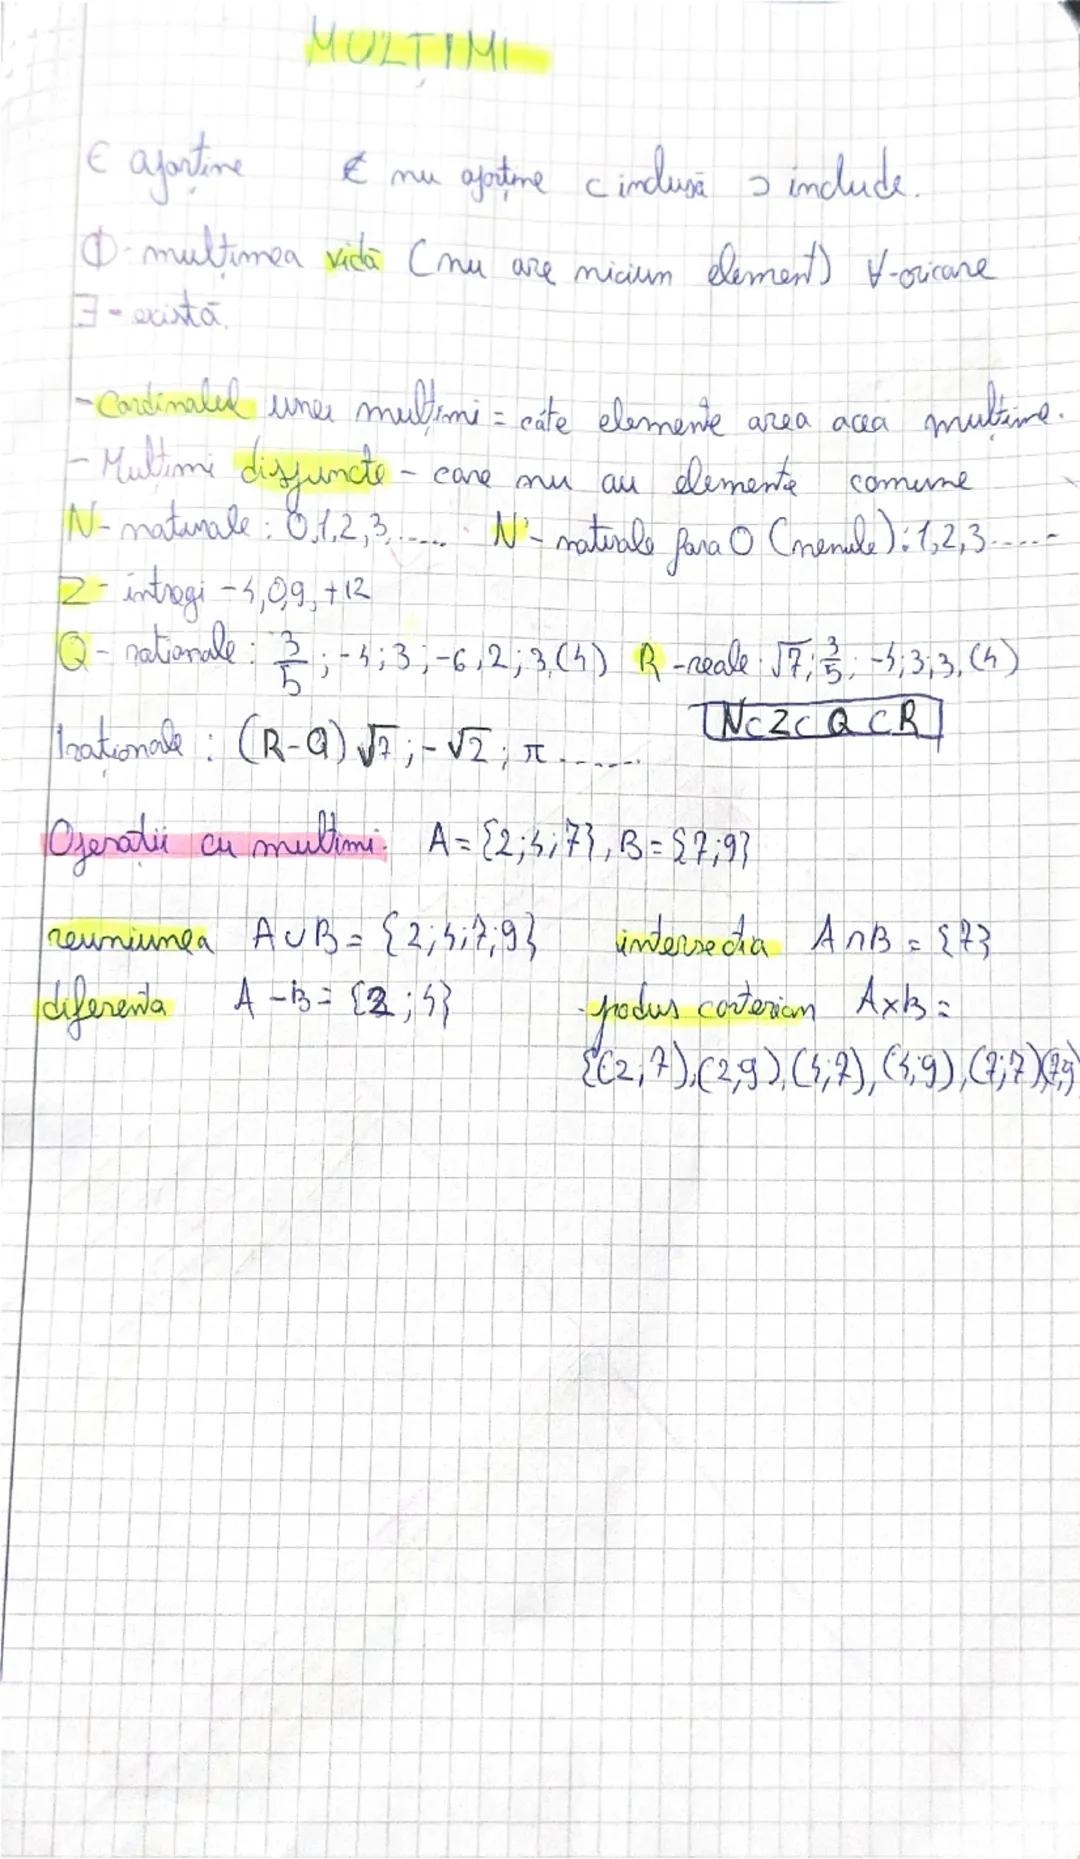 MULȚIMI
∈ aparține ∉ nu aparține ⊂ inclusă ⊃ include.
Φ- mulțimea vidă (nu are niciun element) ∀-oricare
∃-există.
-Cardinalul unei mulțimi = câte elemente area acea mulțime.
- Mulțimi disjuncte - care nu au elemente comune
N- naturale: 0,1,2,3,..... N*- naturale fara 0 (nenule): 1,2,3.....
Z- întregi -4,0,9,+12
Q- raționale: 3/5; -4; 3; -6,2; 3,(4) R -reale: √7; 3/5; -4; 3; 3,(4)
N⊂Z⊂Q⊂R
Iraționale: (R-Q) √7; -√2; π ......
Operații cu mulțimi: A={2;4;7}, B={7;9}
reuniunea A∪B={2;4;7;9} intersecția A∩B={7}
diferența A-B={2;4} produs cartezian A×B=
{(2;7),(2,9),(4;7),(4,9),(7;7)(7,9)